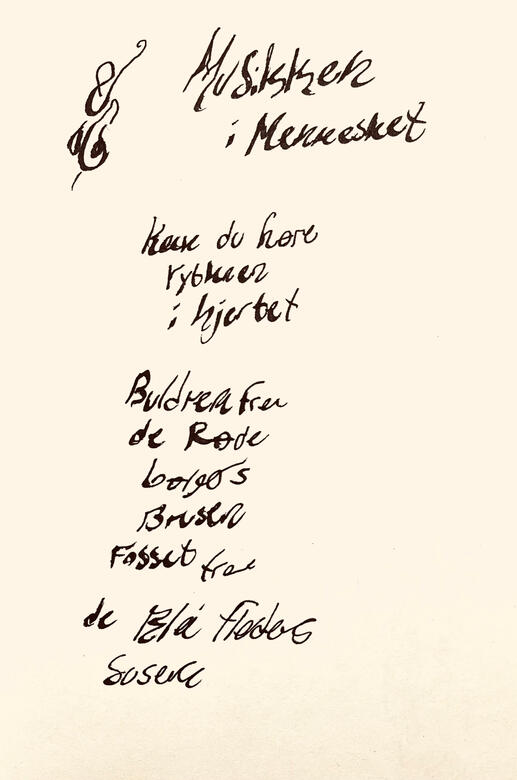 Musikken
i Mennesket
Kan du høre
rytmen
i hjertet
Buldren fra
de Røde
borges
Brusen
Fosset fra
de Blå floders
Susen